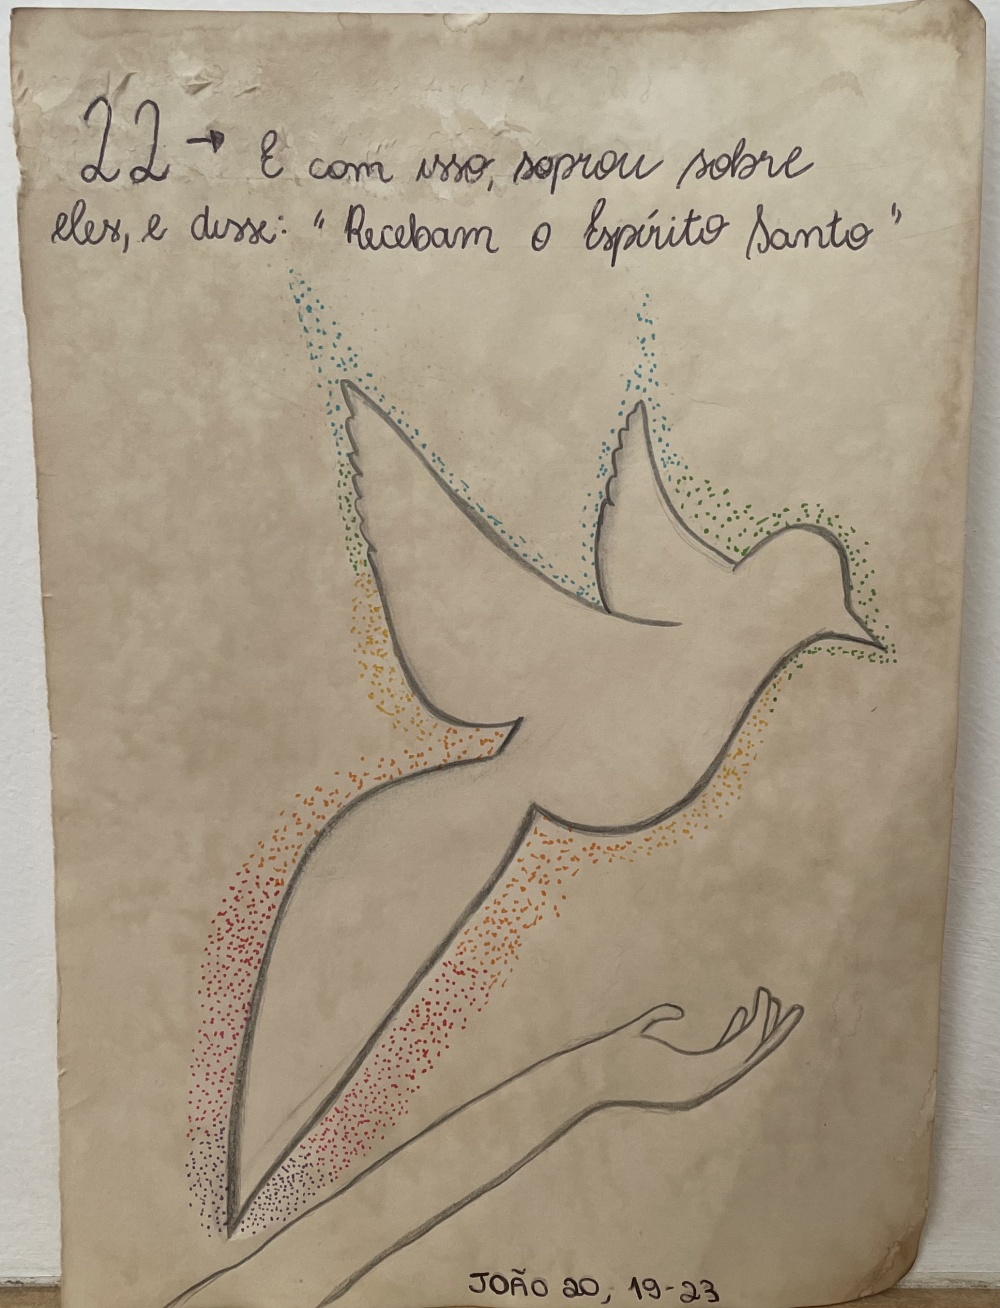 22 → E com isso, soprou sobre
eles, e disse: "Recebam o Espírito Santo"
JOÃO 20, 19-23